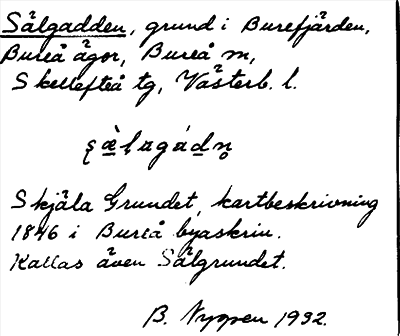 Sälgadden, grund i Burefjärden,
Bureå ägor, Bureå sn,
Skellefteå tg, Västerb. l.
Skjäla Grundet, kartbeskrivning
1846 i Bureå byaskrin.
Kallas även Sälgrundet.
B. Nyggen 1932.